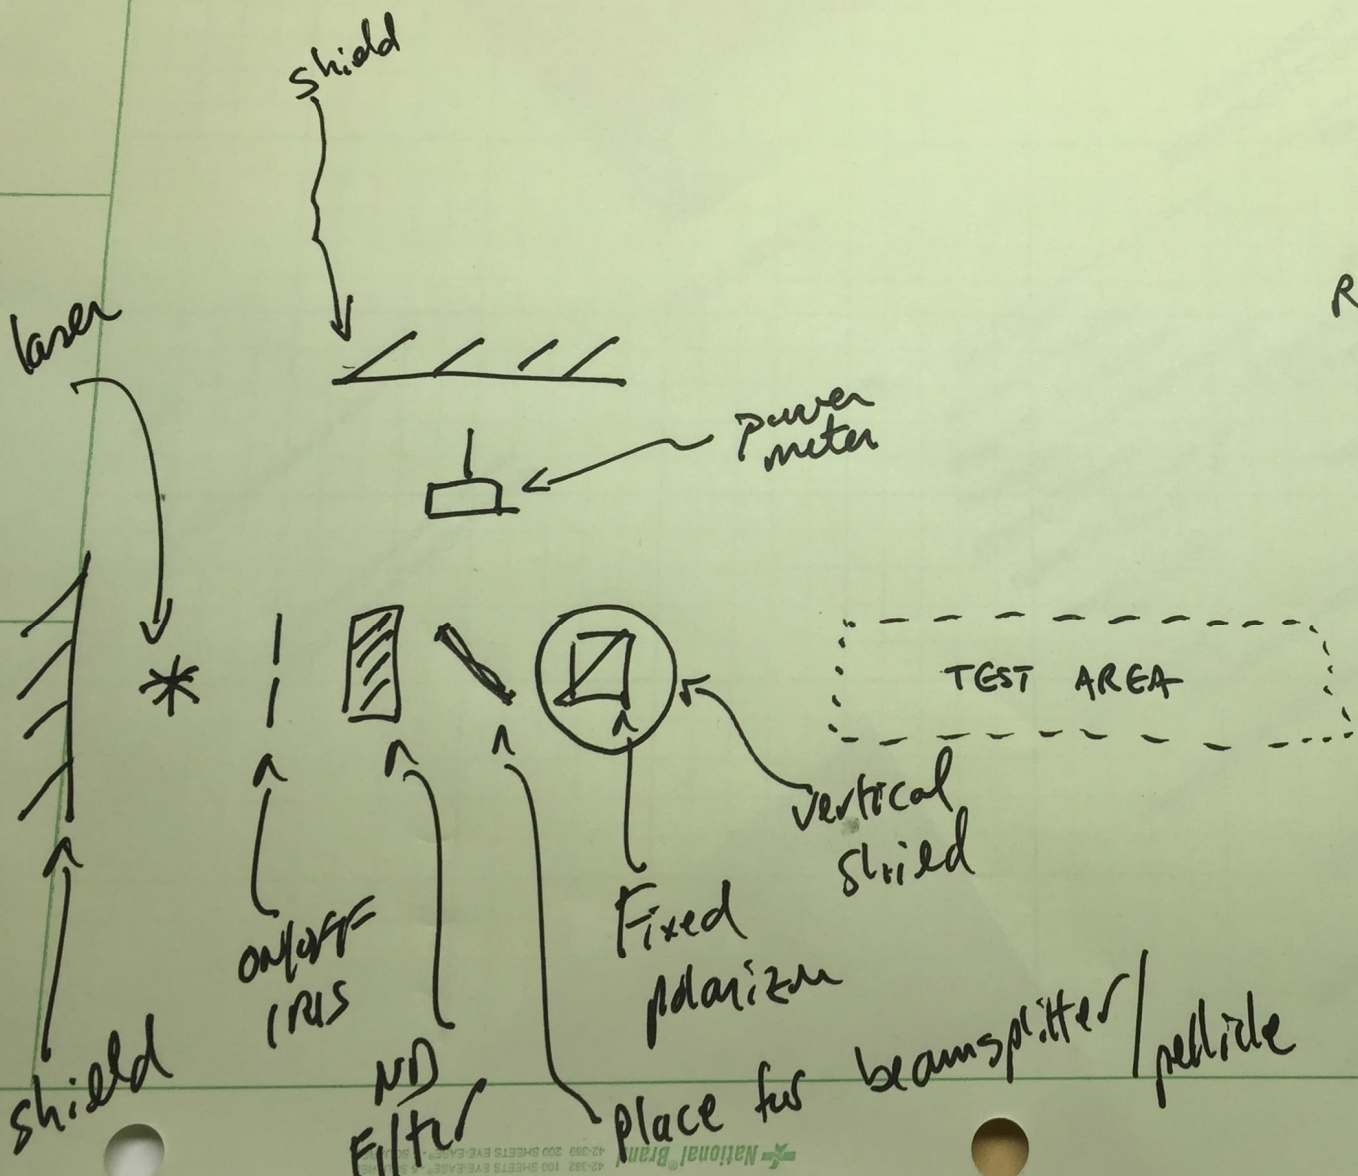 shield
R
laser
power
meter
TEST AREA
vertical
shield
Fixed
polarizer
ON/OFF
IRIS
shield
ND
Filter
place for beamsplitter/pellicle
National® Brand
42-382 100 SHEETS EYE-EASE®
42-389 200 SHEETS EYE-EASE®